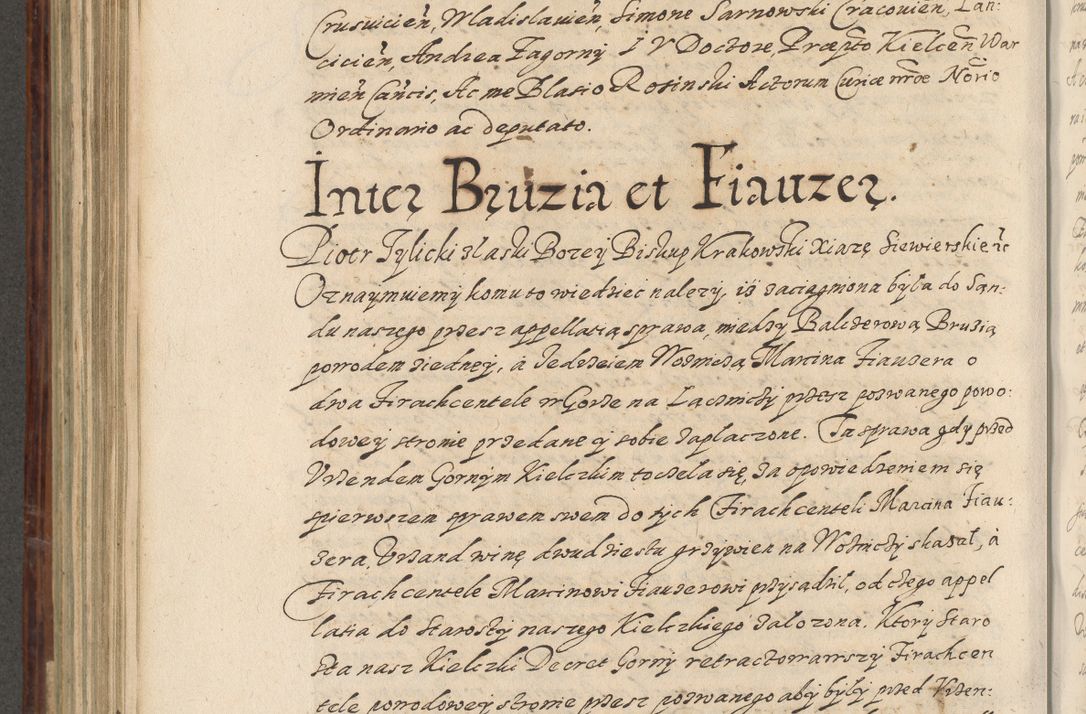 Crusvicien̄, Wladislavien̄, Simone Sarnowski Cracovien̄, Lan:
cicien̄, Andrea Fagorny I V Doctore, Præpto Kielcen̄ War
mien̄ Can̄cis, Ac me Blasio Rosinski Actorum Curiæ nrōe Norio
Ordinario ac deputato.
Inter Bruzia et Fiauzer.
Piotr Tylicki z laski Bozey Biskup Krakowski Xiązę Siewierskie etc
Oznaymuiemy komu to wiedziec nalezy, iż zaciągniona była do Sąn:
du naszego przez appellatią sprawa, między Balcerową Bruzią
powodem z iedney, a Jedrzeiem Woźniczą Marcina Fiauzera o
dwa Firachcentele w Gorze na Łacznczy przez pozwanego powo:
dowey stronie przedane y sobie zapłaczone. Ta sprawa gdy przed
Urzendem Gornym Kielczkim toczeła się, za opowiedzeniem się
spierwszem sprawem swem do tych Firachcenteli Marcina Fiau:
zera, Urzand winę dwudziestu grzywien na Woźniczy skazał, à
Firachcentele Marcinowi Fiauzerowi przysądził, od czego appel
latia do Starosty naszego Kielczkiego założona. Ktory Staro
sta nasz Kielczki Decret Gorny retractowawszy Firachcen
tele powodowey stronie przez pozwanego aby były przed Urzen: